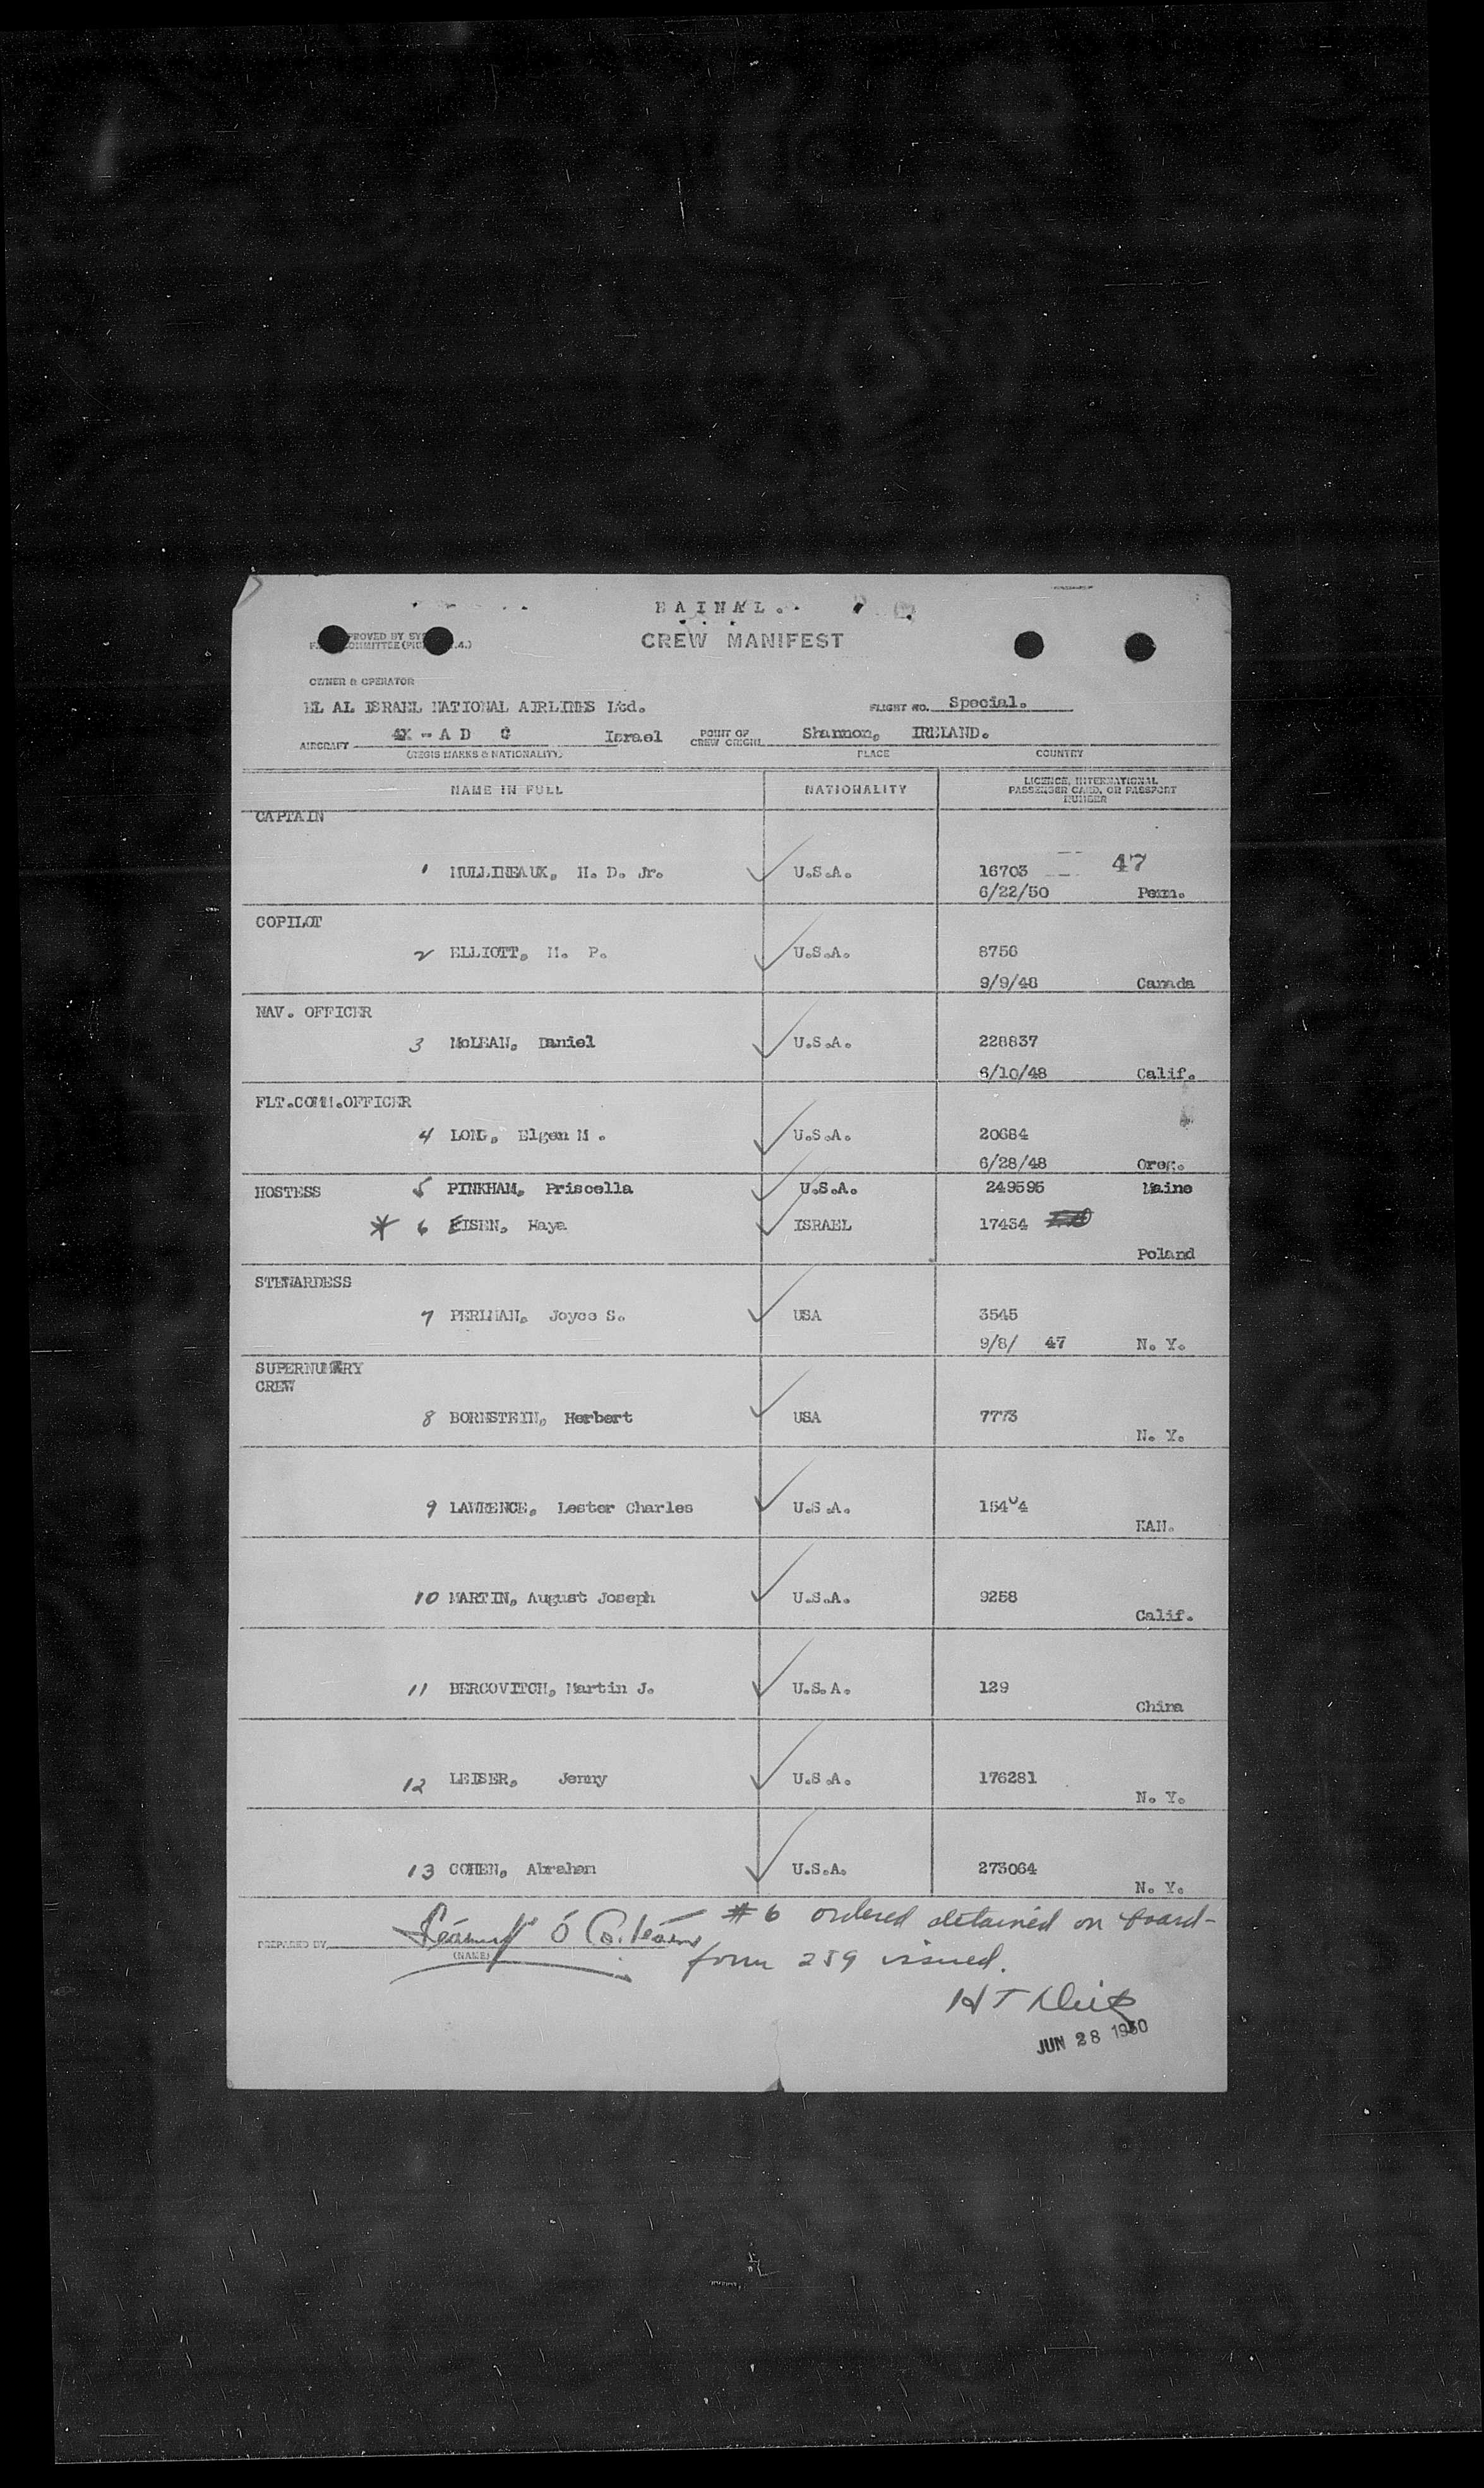 CREW MANIFEST
OWNER & OPERATOR
EL AL ISRAEL NATIONAL AIRLINES Ltd. FLIGHT NO. Special.
AIRCRAFT 4X - A D C Israel POINT OF CREW ORIGIN Shannon, IRELAND.
(REGIS MARKS & NATIONALITY) PLACE COUNTRY
NAME IN FULL NATIONALITY LICENCE, INTERNATIONAL PASSENGER CARD, OR PASSPORT NUMBER
CAPTAIN
1 MULLINEAUX, H. D. Jr. U.S.A. 16703 47
6/22/50 Penn.
COPILOT
2 ELLIOTT, H. P. U.S.A. 8756
9/9/48 Canada
NAV. OFFICER
3 McLEAN, Daniel U.S.A. 228837
6/10/48 Calif.
FLT.COMM.OFFICER
4 LONG, Elgen M. U.S.A. 20684
6/28/48 Oreg.
HOSTESS 5 PINKHAM, Priscella U.S.A. 249595 Maine
* 6 EISEN, Haya ISRAEL 17434
Poland
STEWARDESS
7 PERLMAN, Joyce S. USA 3545
9/8/ 47 N. Y.
SUPERNUMARY
CREW
8 BORNSTEIN, Herbert USA 7773
N. Y.
9 LAWRENCE, Lester Charles U.S.A. 15404
KAN.
10 MARTIN, August Joseph U.S.A. 9258
Calif.
11 BERCOVITCH, Martin J. U.S.A. 129
China
12 LEISER, Jenny U.S.A. 176281
N. Y.
13 COHEN, Abraham U.S.A. 273064
N. Y.
#6 ordered detained on board-
PREPARED BY
(NAME) form 259 issued.
H T
JUN 28 1950